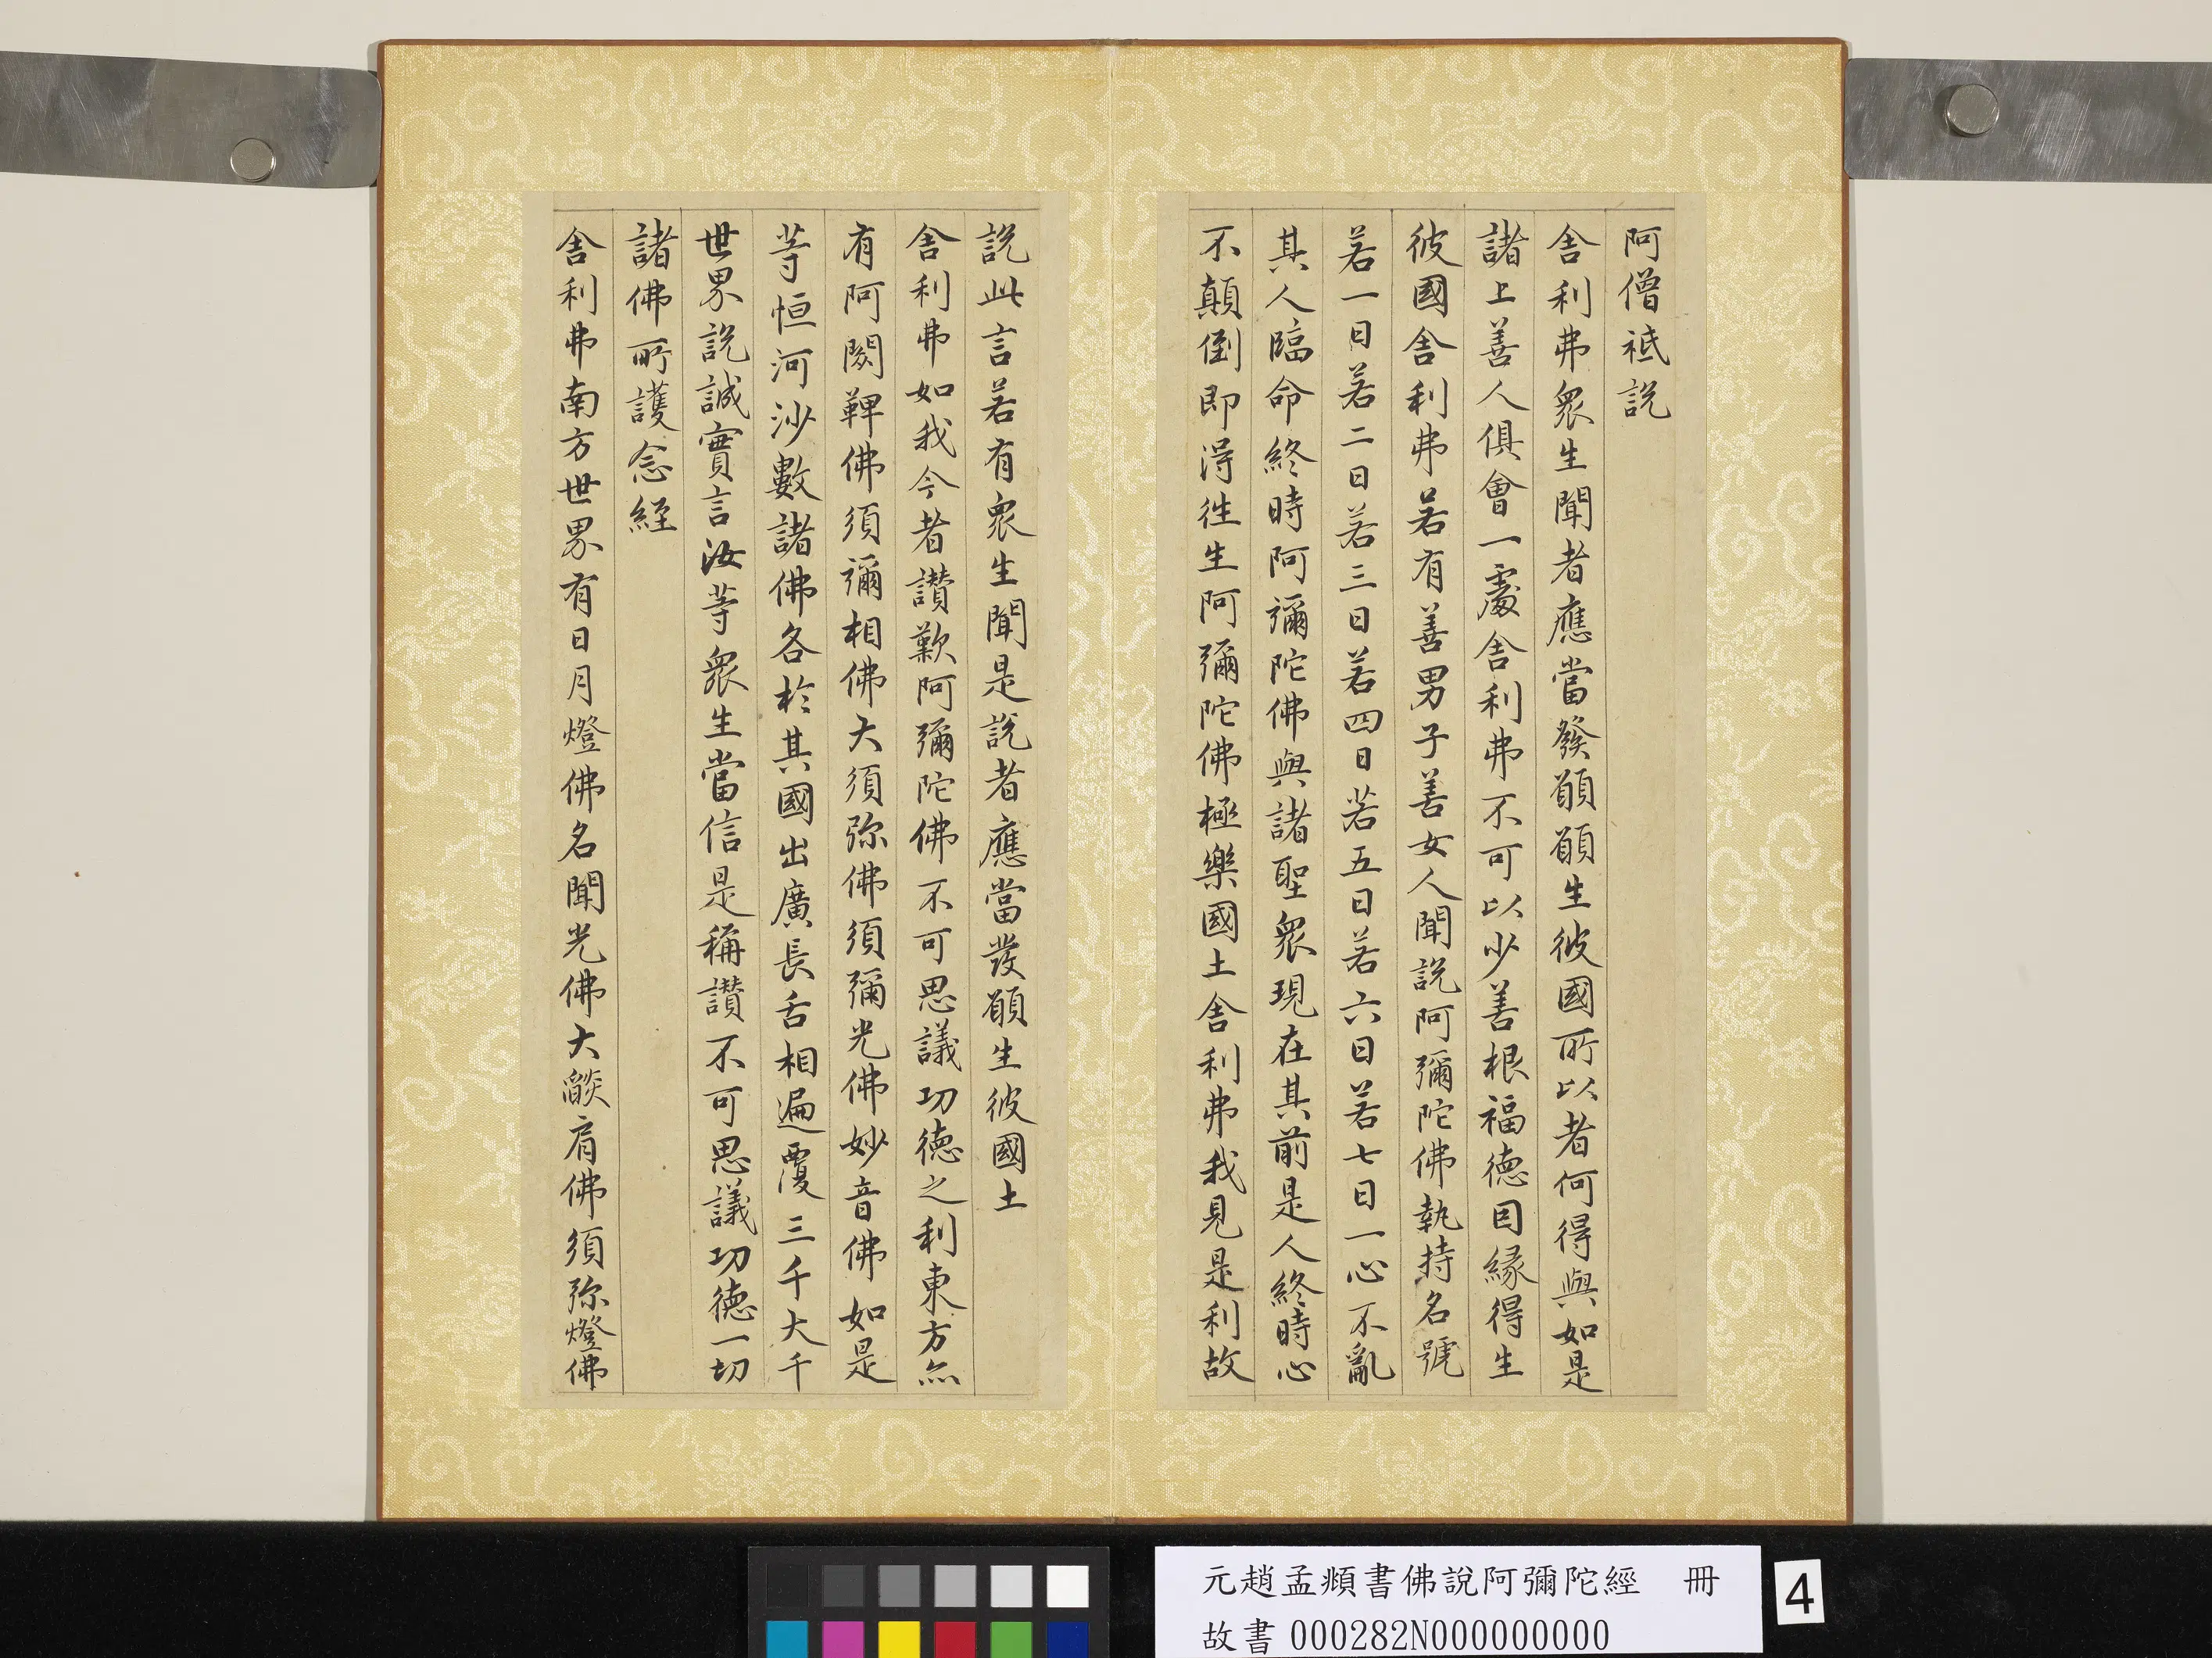 阿僧祇說
舍利弗眾生聞者應當發願願生彼國所以者何得與如是
諸上善人俱會一處舍利弗不可以少善根福德因緣得生
彼國舍利弗若有善男子善女人聞說阿彌陀佛執持名號
若一日若二日若三日若四日若五日若六日若七日一心不亂
其人臨命終時阿彌陀佛與諸聖眾現在其前是人終時心
不顛倒即得往生阿彌陀佛極樂國土舍利弗我見是利故
說此言若有眾生聞是說者應當發願生彼國土
舍利弗如我今者讚歎阿彌陀佛不可思議功德之利東方亦
有阿閦鞞佛須彌相佛大須弥佛須彌光佛妙音佛如是
等恒河沙數諸佛各於其國出廣長舌相遍覆三千大千
世界說誠實言汝等眾生當信是稱讚不可思議功德一切
諸佛所護念經
舍利弗南方世界有日月燈佛名聞光佛大燄肩佛須弥燈佛
元趙孟頫書佛說阿彌陀經 冊
故書 000282N000000000
4